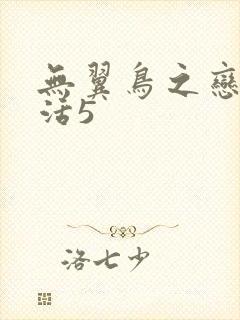 無翼鳥之戀
活5
洛七少